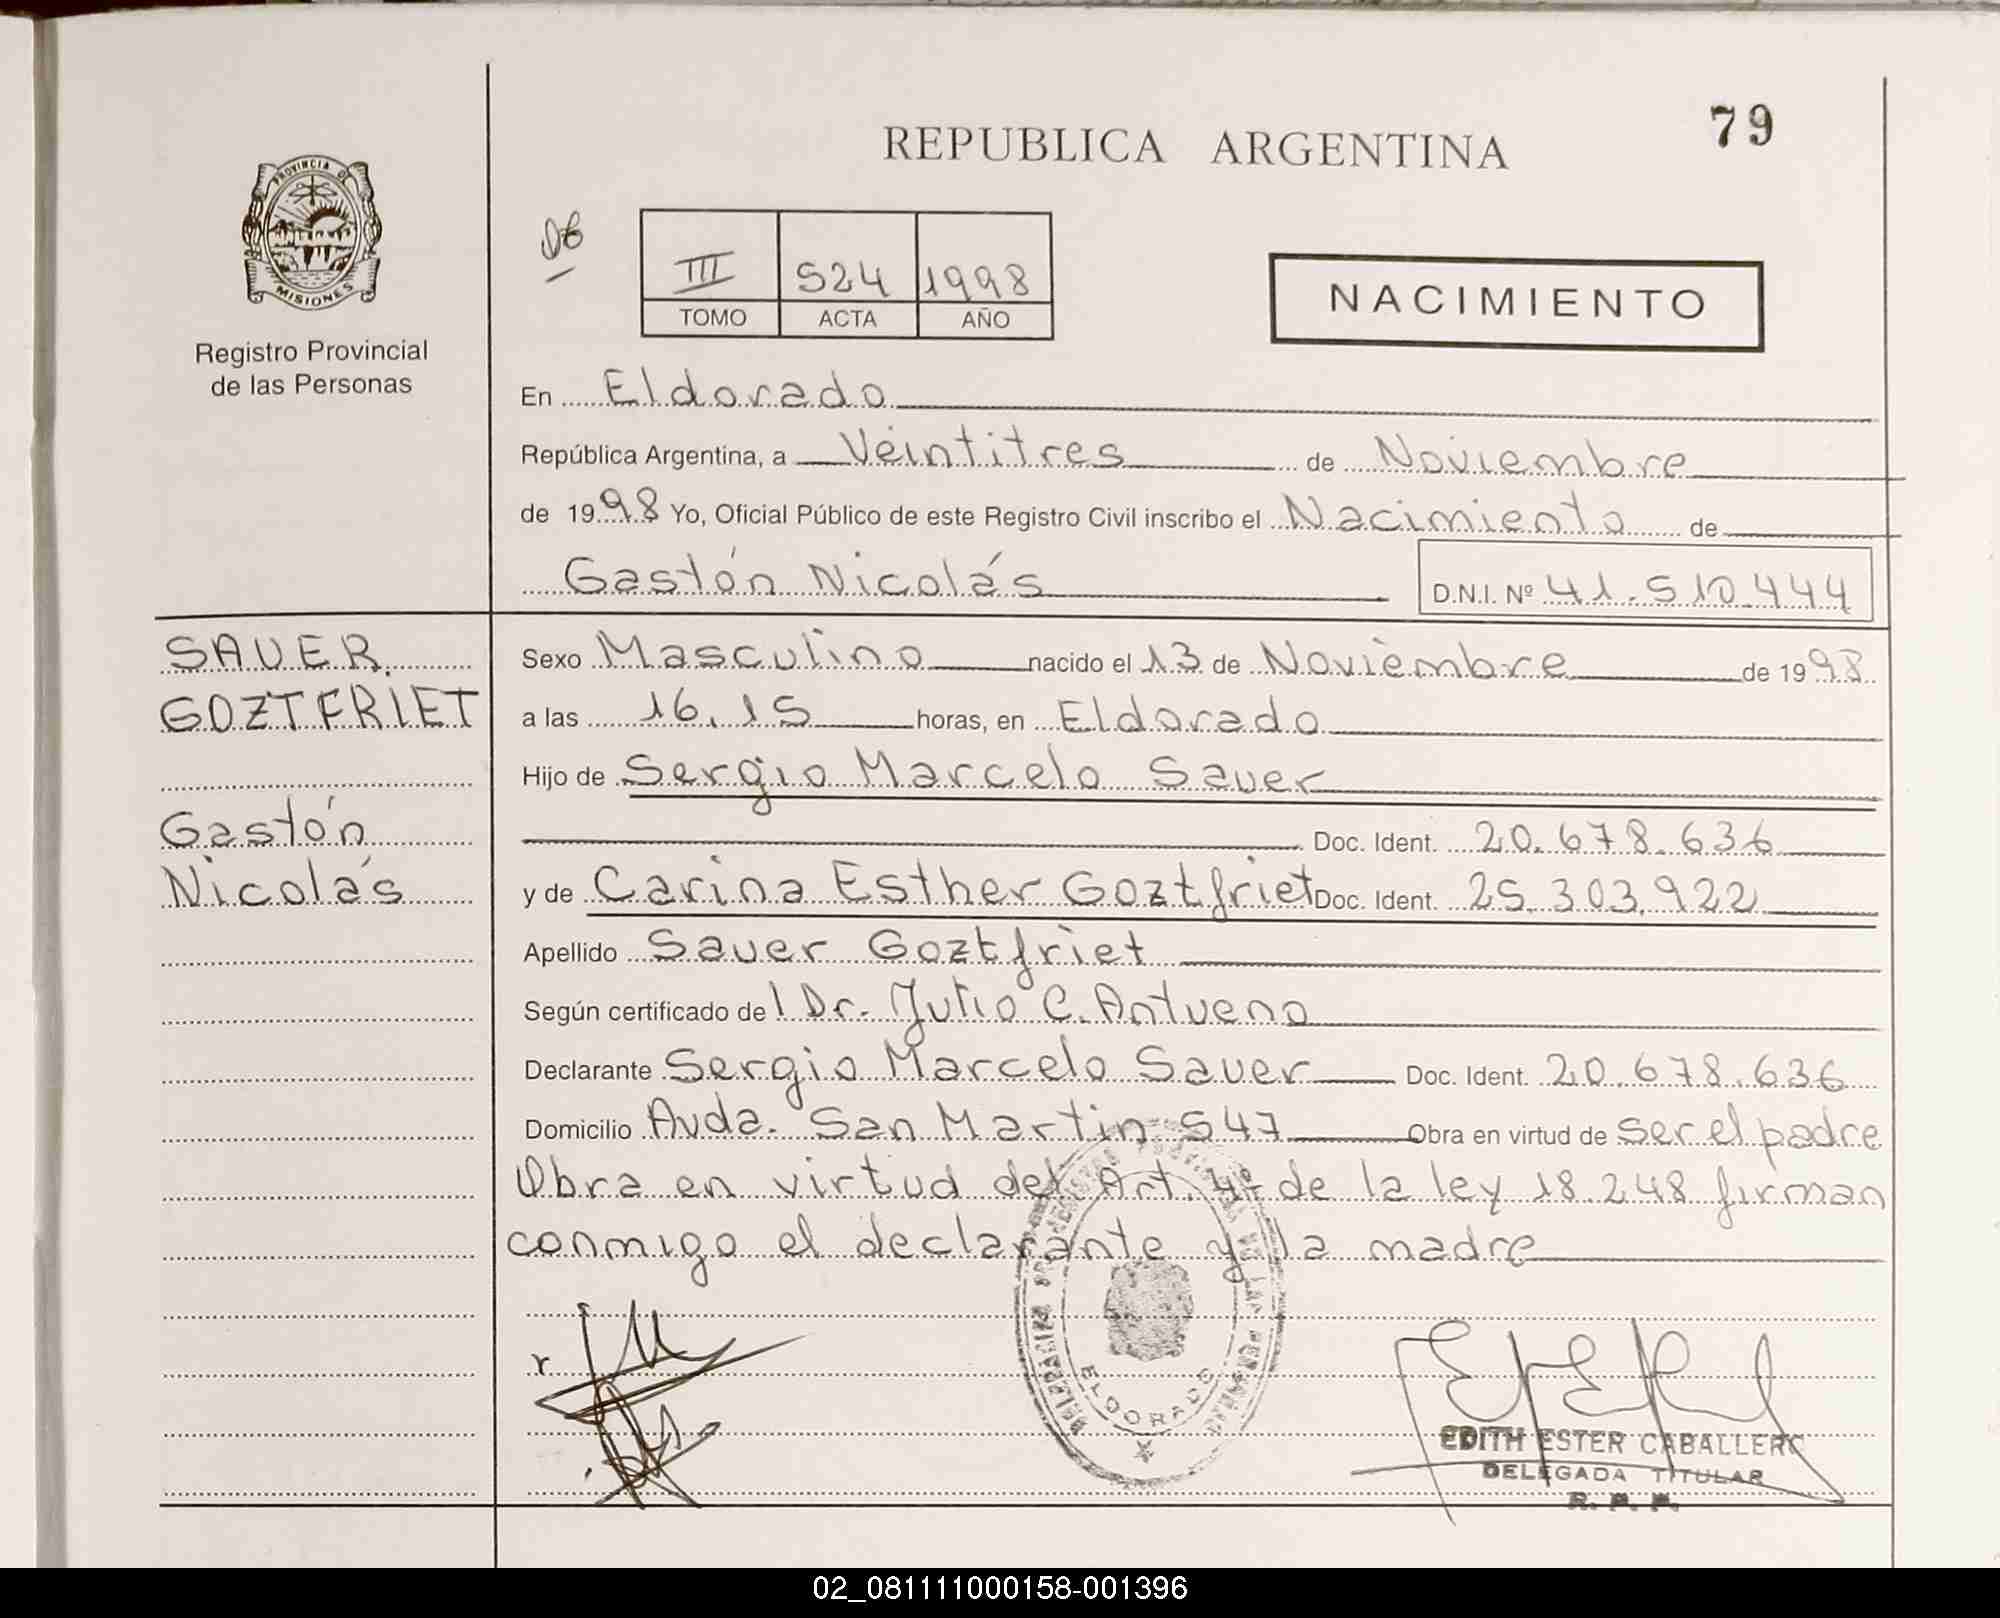 79
REPUBLICA ARGENTINA
PROVINCIA DE
MISIONES
Registro Provincial
de las Personas
III 524 1998
TOMO ACTA AÑO
NACIMIENTO
En Eldorado
República Argentina, a Veintitres de Noviembre
de 1998 Yo, Oficial Público de este Registro Civil inscribo el Nacimiento de
Gastón Nicolás D.N.I. Nº 41.510.444
SAUER
GOZTFRIET
Gastón
Nicolás
Sexo Masculino nacido el 13 de Noviembre de 1998
a las 16,15 horas, en Eldorado
Hijo de Sergio Marcelo Sauer
Doc. Ident. 20.678.636
y de Carina Esther Goztfriet Doc. Ident. 25.303.922
Apellido Sauer Goztfriet
Según certificado del Dr. Julio C. Antueno
Declarante Sergio Marcelo Sauer Doc. Ident. 20.678.636
Domicilio Avda. San Martin 547 Obra en virtud de ser el padre
Obra en virtud del Art. 4º de la ley 18.248 firman
conmigo el declarante y la madre
ELDORADO
EDITH ESTER CABALLERO
DELEGADA TITULAR
R. P. P.
02_081111000158-001396